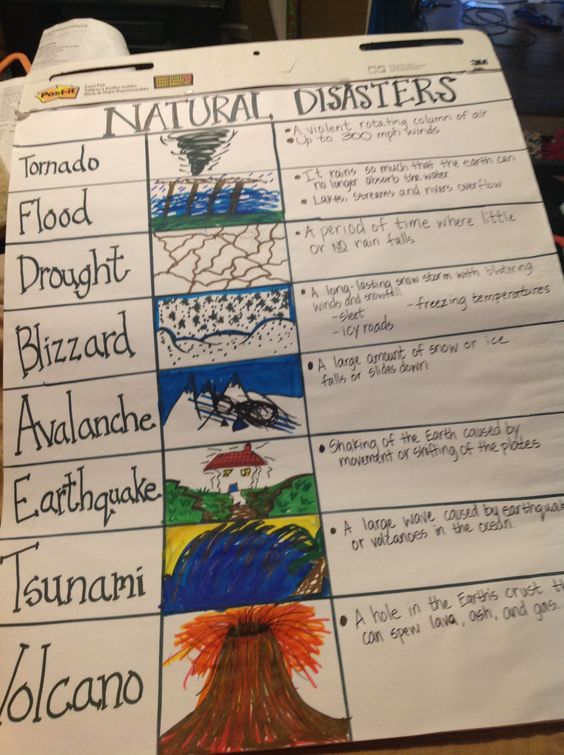 Post-it
3M
NATURAL DISASTERS
Tornado
• A violent rotating column of air
• Up to 300 mph winds
Flood
• It rains so much that the earth can
no longer absorb the water.
• Lakes, streams and rivers overflow
Drought
• A period of time where little
or NO rain falls.
Blizzard
• A long-lasting snow storm with
winds and snowfall
-sleet
-freezing temperatures
-icy roads
Avalanche
• A large amount of snow or ice
falls or slides down
Earthquake
• Shaking of the Earth caused by
movement or shifting of the plates
Tsunami
• A large wave caused by earthquak
or volcanoes in the ocean.
Volcano
• A hole in the Earth's crust th
can spew lava, ash, and gas.